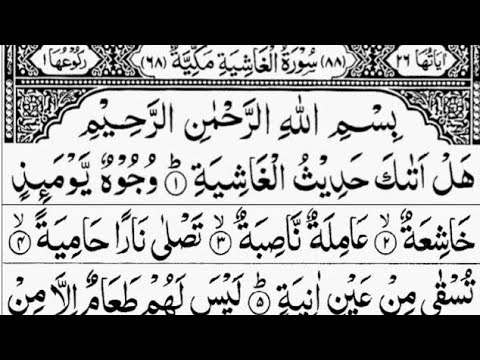 اٰیَاتُهَا ٢٦ (٨٨) سُوْرَةُ الْغَاشِيَةِ مَكِّيَّةٌ (٦٨) رُكُوْعُهَا ١
بِسْمِ اللّٰهِ الرَّحْمٰنِ الرَّحِيْمِ
هَلْ اَتٰىكَ حَدِيْثُ الْغَاشِيَةِ ؕ﴿١﴾ وُجُوْهٌ يَّوْمَىِٕذٍ
خَاشِعَةٌ ۙ﴿٢﴾ عَامِلَةٌ نَّاصِبَةٌ ۙ﴿٣﴾ تَصْلٰى نَارًا حَامِيَةً ۙ﴿٤﴾
تُسْقٰى مِنْ عَيْنٍ اٰنِيَةٍ ؕ﴿٥﴾ لَيْسَ لَهُمْ طَعَامٌ اِلَّا مِنْ